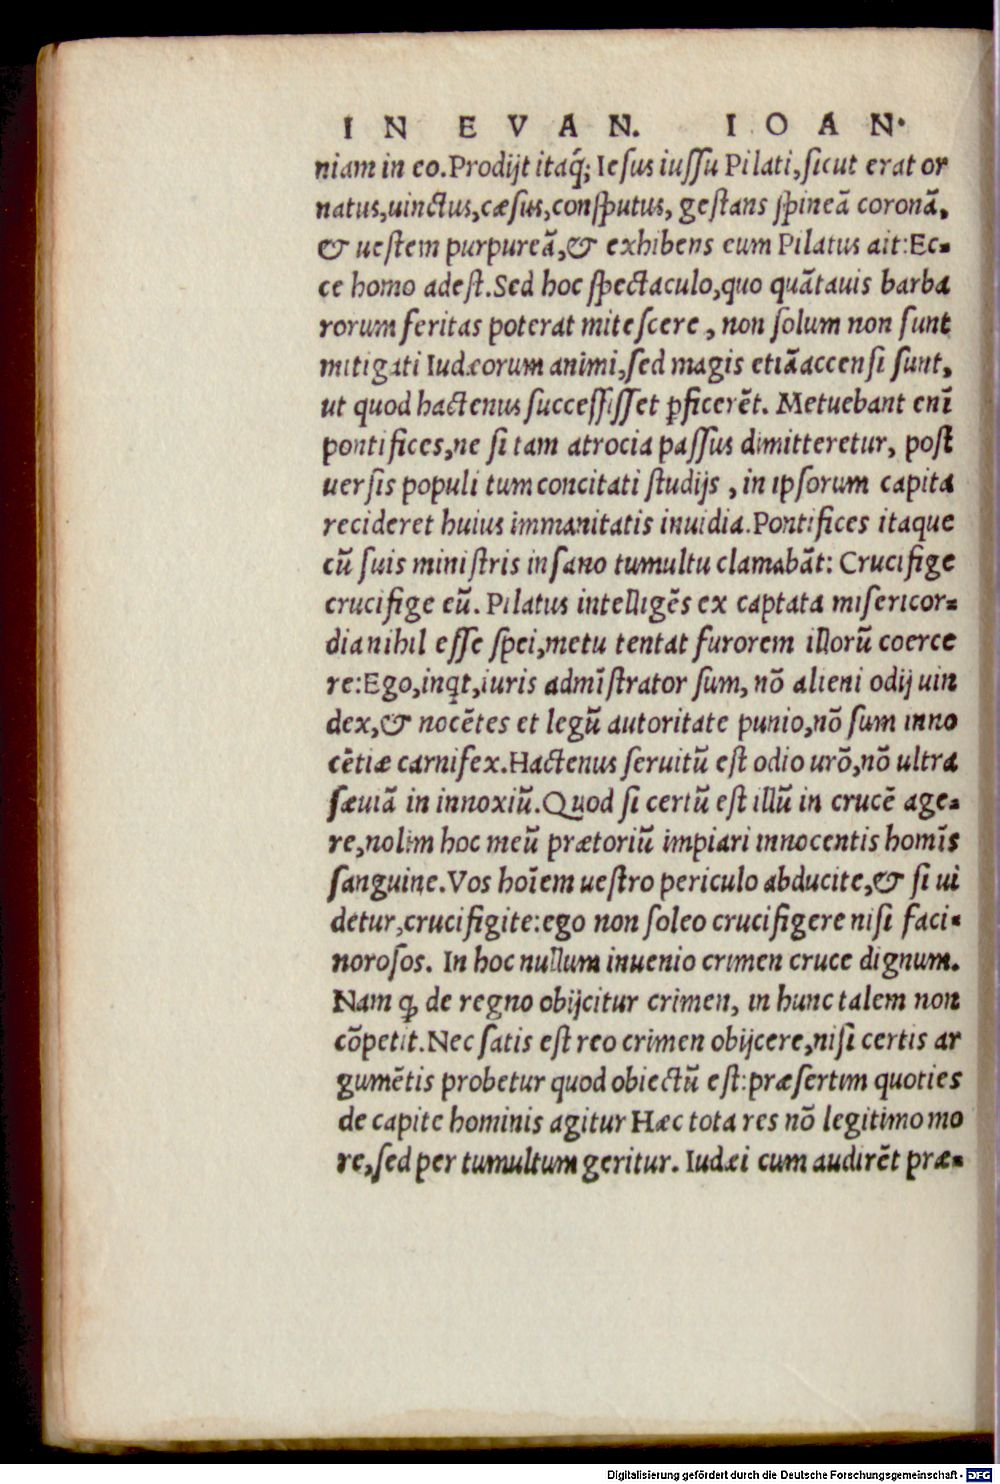 IN EVAN. IOAN.
niam in eo. Prodijt itaq́; Iesus iussu Pilati, sicut erat or
natus, uinctus, cæsus, consputus, gestans spineã coronã,
& uestem purpureã, & exhibens eum Pilatus ait: Ec-
ce homo adest. Sed hoc spectaculo, quo quãtauis barba
rorum feritas poterat mitescere, non solum non sunt
mitigati Iudæorum animi, sed magis etiã accensi sunt,
ut quod hactenus successisset ꝑficerẽt. Metuebant enĩ
pontifices, ne si tam atrocia passus dimitteretur, post
uersis populi tum concitati studijs, in ipsorum capita
recideret huius immanitatis inuidia. Pontifices itaque
cũ suis ministris insano tumultu clamabãt: Crucifige
crucifige eũ. Pilatus intelligẽs ex captata misericor-
dia nihil esse spei, metu tentat furorem illorũ coerce
re: Ego, inq̃t, iuris admĩstrator sum, nõ alieni odij uin
dex, & nocẽtes et legũ autoritate punio, nõ sum inno
cẽtiæ carnifex. Hactenus seruitũ est odio urõ, nõ ultra
sæuiã in innoxiũ. Quod si certũ est illũ in crucẽ age-
re, nolim hoc meũ prætoriũ impiari innocentis homĩs
sanguine. Vos hoĩem uestro periculo abducite, & si ui
detur, crucifigite: ego non soleo crucifigere nisi faci-
norosos. In hoc nullum inuenio crimen cruce dignum.
Nam ꝙ de regno obijcitur crimen, in hunc talem non
cõpetit. Nec satis est reo crimen obijcere, nisi certis ar
gumẽtis probetur quod obiectũ est: præsertim quoties
de capite hominis agitur Hæc tota res nõ legitimo mo
re, sed per tumultum geritur. Iudæi cum audirẽt præ-
Digitalisierung gefördert durch die Deutsche Forschungsgemeinschaft - DFG